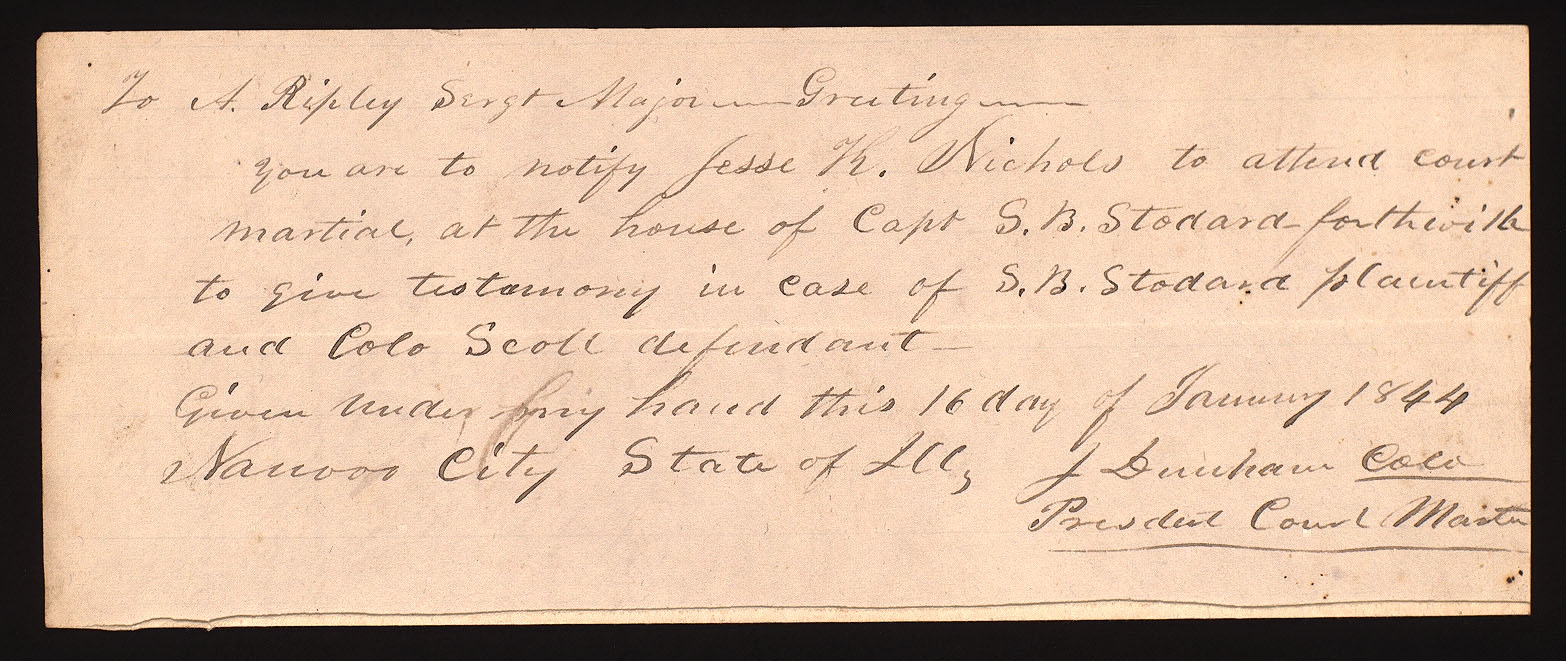 To A. Ripley Sergt Major — Greeting —
you are to notify Jesse K. Nichols to attend court
martial, at the house of Capt S. B. Stodard forthwith
to give testamony in case of S. B. Stodard plaintiff
and Colo Scott defendant —
Given under my hand this 16 day of January 1844
Nauvoo City State of Ill, J Dunham Colo
Presdent Court Martia